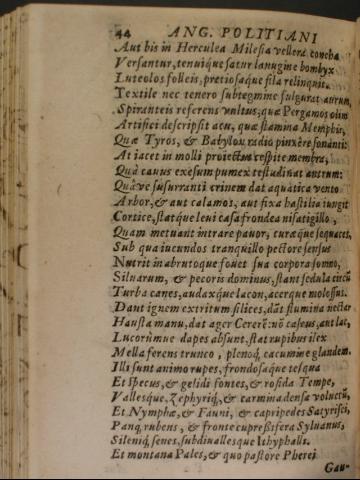 44 ANG. POLITIANI
Aut bis in Herculea Milesia vellera concha
Versantur, tenuique satur lanugine bombyx
Luteolos folleis, pretiosaque fila relinquit.
Textile nec tenero subtegmine fulgurat aurum,
Spiranteis referens vultus; quæ Pergamos olim
Artifici descripsit acu, quæ stamina Memphis,
Quæ Tyros, & Babylon radio pinxêre sonanti:
At iacet in molli proiectus cespite membra,
Quà cauus exesum pumex testudinat antrum:
Quàve susurranti crinem dat aquatica vento
Arbor, & aut calamos, aut fixa hastilia iungit
Cortice, statque leui casa frondea nisa tigillo,
Quam metuant intrare pauor, curæque sequaces,
Sub qua iucundos tranquillo pectore sensus
Nutrit inabrutoque fouet sua corpora somno,
Siluarum, & pecoris dominus, stant sedula circũ
Turba canes, audaxque lacon, acerque molossus.
Dant ignem extritum silices, dãt flumina nectar
Hausta manu, dat ager Cererẽ: nõ caseus, aut lac,
Lucorúmue dapes absunt. stat rupibus ilex
Mella ferens trunco, plenoq; cacumine glandem.
Illi sunt animo rupes, frondosaque tesqua
Et specus, & gelidi fontes, & rosida Tempe,
Vallesque, Zephyriq;, & carmina densa volucrũ,
Et Nymphæ, & Fauni, & capripedes Satyrisci,
Panq; rubens, & fronte cupressifera Syluanus,
Sileniq; senes, subdiuallesque Ithyphalli.
Et montana Pales, & quo pastore Pherei
Gau-